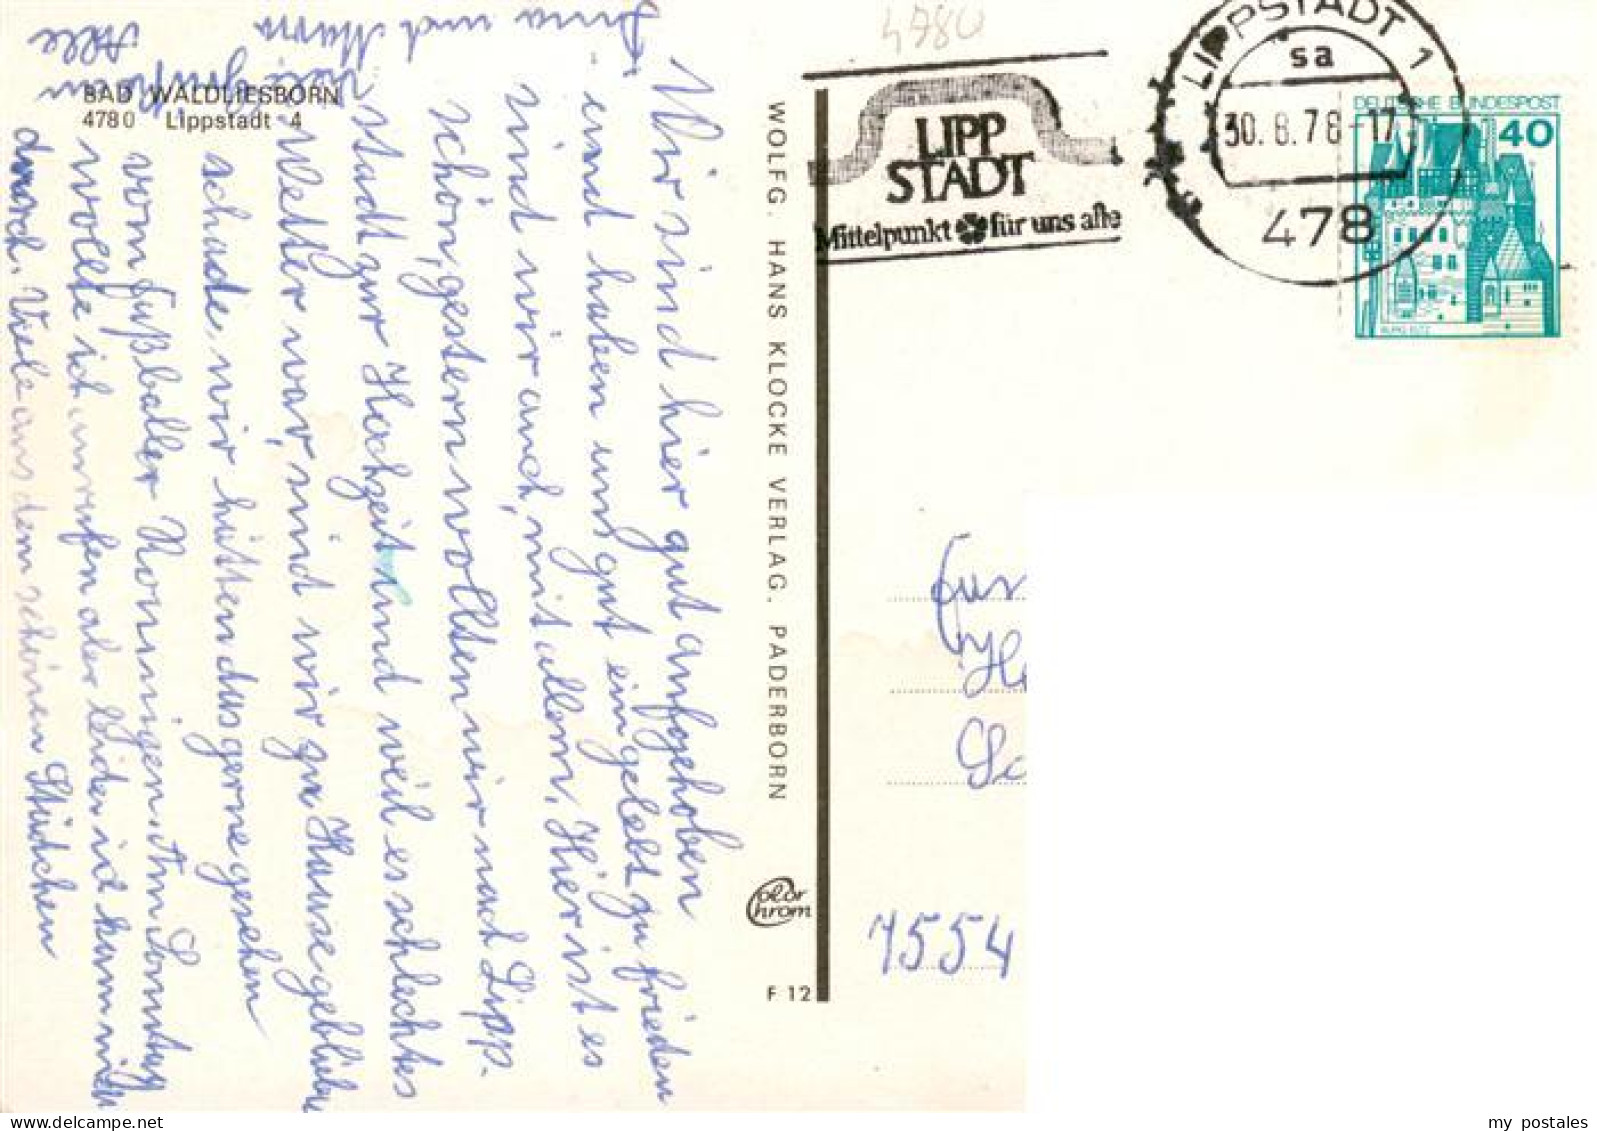 BAD WALDLIESBORN
4780 Lippstadt 4
4780
LIPP
STADT
Mittelpunkt für uns alle
LIPPSTADT 1
sa
30.8.78-17
478
DEUTSCHE BUNDESPOST
40
BURG ELTZ
Wir sind hier gut aufgehoben
und haben uns gut eingelebt zufrieden
sind wir auch, mit allem, Hier ist es
schön, gestern wollten wir nach Lipp-
stadt zur Hochzeit und weil es schlechtes
Wetter war, sind wir zu Hause geblieben
schade, wir hätten das gerne gesehen
vom Fußballer Rominigen. Am Sonntag
wollte ich anrufen aber leider ich kam nicht
durch. Viele aus dem schönen Städtchen
Alle
und
WOLFG. HANS KLOCKE VERLAG, PADERBORN
Color
Chrom
F 12
7554
my postales